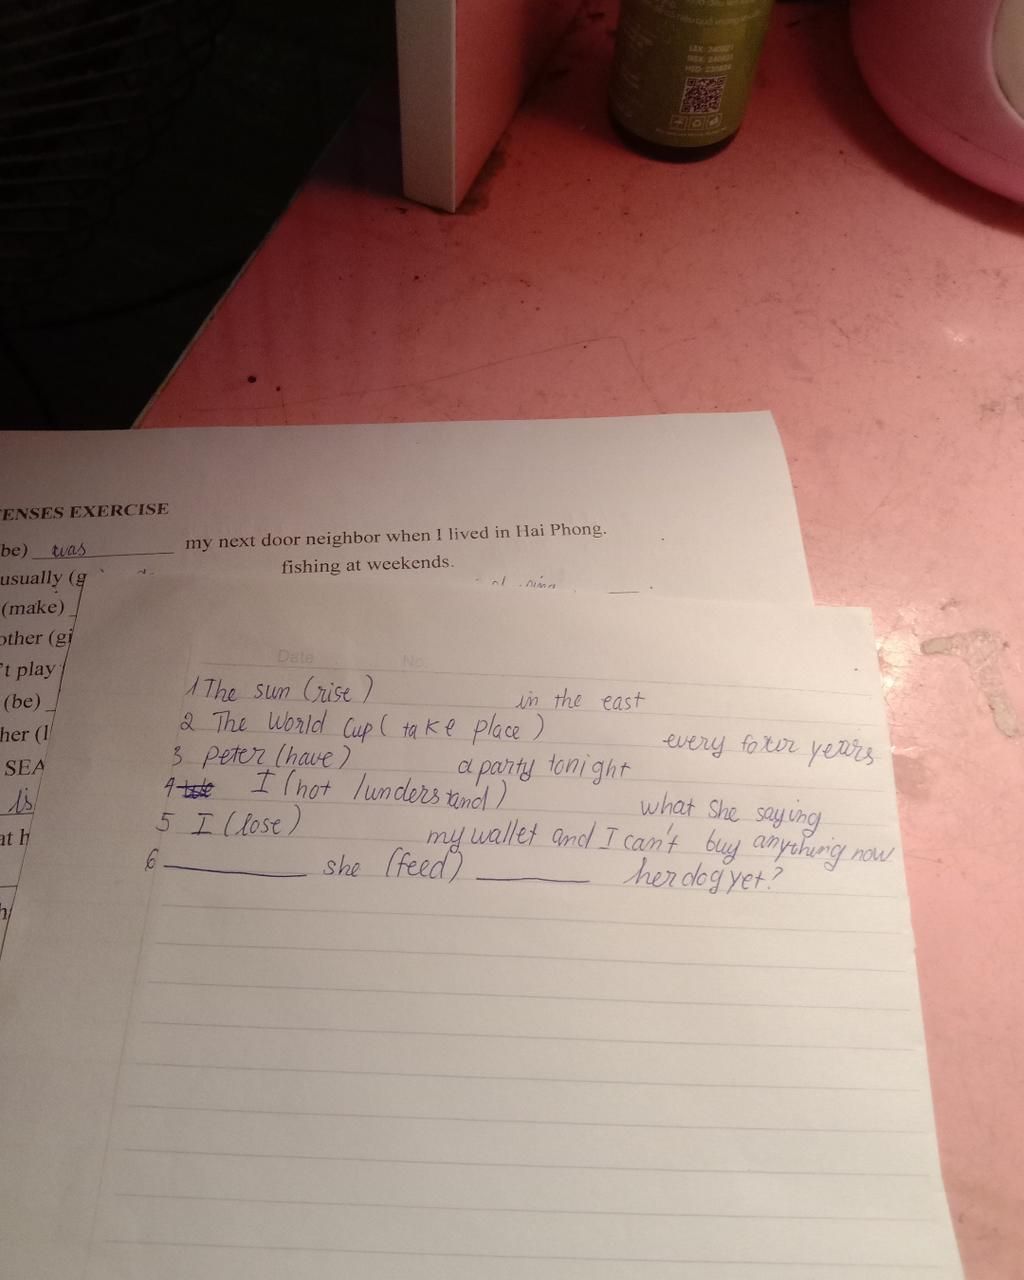 LSX: 240821
NSX: 240821
HSD: 230824
ENSES EXERCISE
be) was my next door neighbor when I lived in Hai Phong.
usually (g fishing at weekends.
(make)
other (gi
't play
(be)
her (l
SEA
is
at h
Date No.
1 The sun (rise) in the east
2 The World Cup (take place) every four years
3 Peter (have) a party tonight
4 I (not /understand) what she saying
5 I (lose) my wallet and I can't buy anything now
6 ________ she (feed) ________ her dog yet?